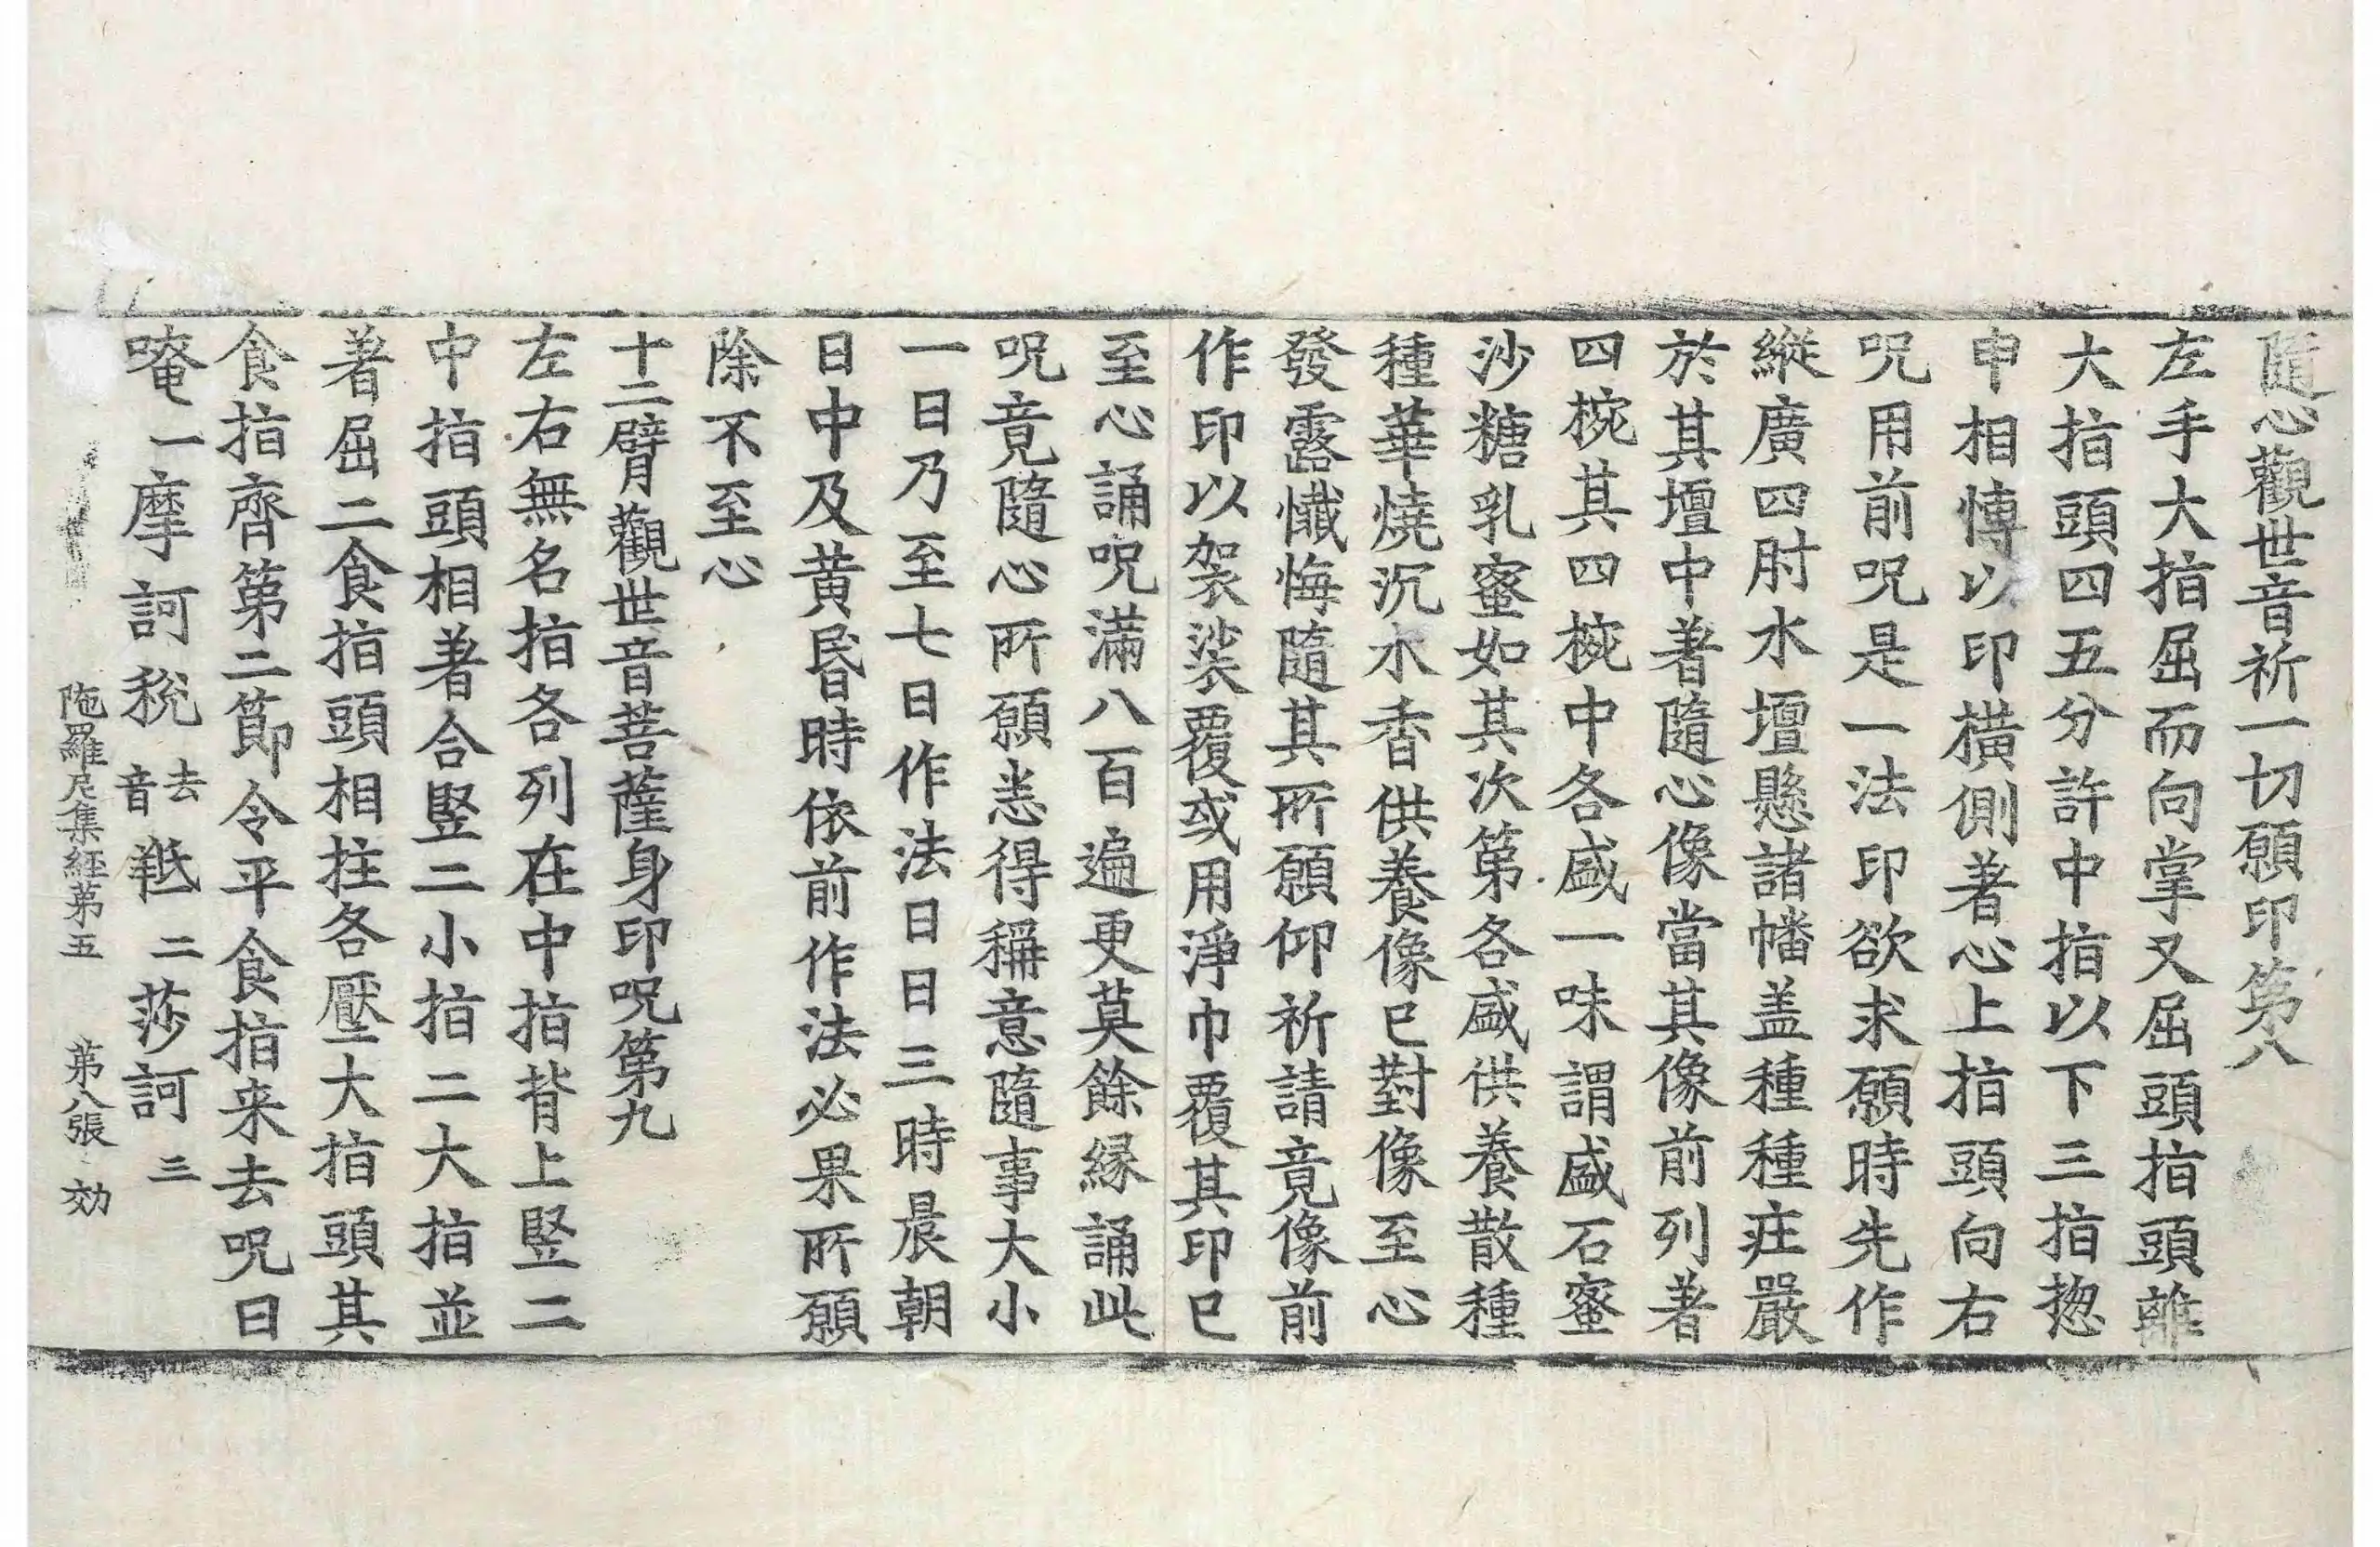 隨心觀世音祈一切願印第八
左手大指屈而向掌又屈頭指頭離
大指頭四五分許中指以下三指惣
申相愽以印橫側著心上指頭向右
呪用前呪是一法印欲求願時先作
縱廣四肘水壇懸諸幡盖種種㽵嚴
於其壇中著隨心像當其像前列著
四椀其四椀中各盛一味謂盛石蜜
沙糖乳蜜如其次第各盛供養散種
種華燒沉水香供養像已對像至心
發露懺悔隨其所願仰祈請竟像前
作印以袈裟覆或用淨巾覆其印已
至心誦呪滿八百遍更莫餘緣誦此
呪竟隨心所願悉得稱意隨事大小
一日乃至七日作法日日三時晨朝
日中及黃昏時依前作法必果所願
除不至心
十二臂觀世音菩薩身印呪第九
左右無名指各列在中指背上竪二
中指頭相著合竪二小指二大指並
著屈二食指頭相拄各壓大指頭其
食指齊第二節令平食指来去呪曰
唵一摩訶稅去音羝二莎訶三
陁羅尼集經第五 第八張 効